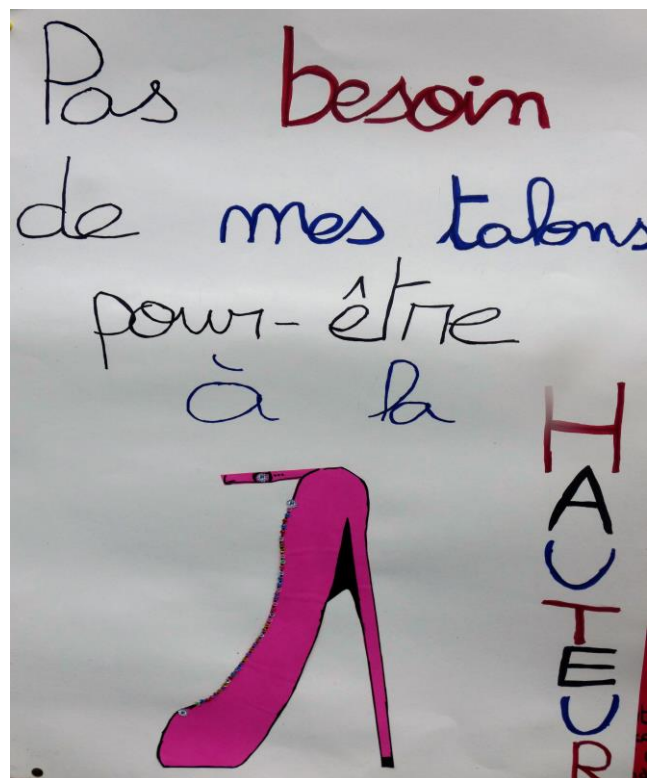 Pas besoin
de mes talons
pour-être
à la
HAUTEUR